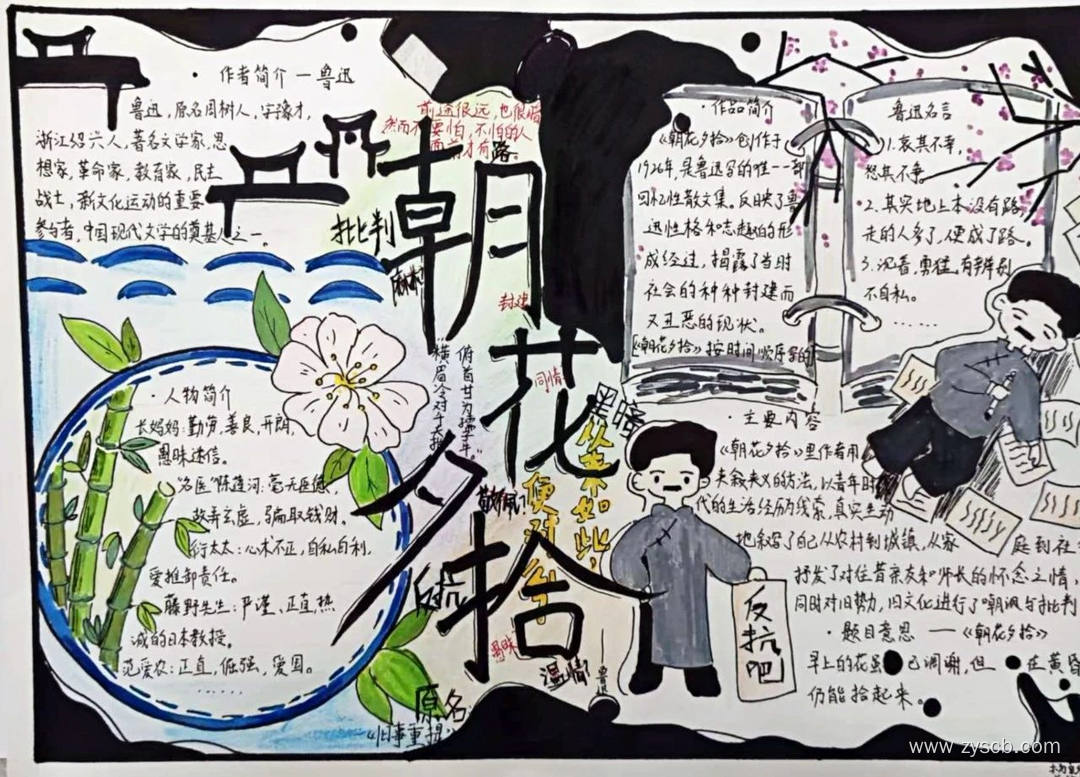 ·作者简介—鲁迅
鲁迅，原名周树人，字豫才，
浙江绍兴人，著名文学家，思
想家，革命家，教育家，民主
战士，新文化运动的重要
参与者，中国现代文学的奠基人之一。
前途很远，也很暗
然而不要怕，不怕的人
面前才有路。
朝花夕拾
批判
麻木
封建
同情
黑暗
俯首甘为孺子牛。”
“横眉冷对千夫指，
从来如此，
便对么
反抗
愚昧
温情
——鲁迅
原名：
《旧事重提》
·人物简介
长妈妈：勤劳，善良，开朗，
愚昧迷信。
“名医”陈莲河：毫无医德，
故弄玄虚，骗取钱财。
衍太太：心术不正，自私自利，
爱推卸责任。
藤野先生：严谨，正直，热
诚的日本教授。
范爱农：正直，倔强，爱国。
......
·作品简介
《朝花夕拾》创作于
1926年，是鲁迅写的唯一一部
回忆性散文集。反映了鲁
迅性格和志趣的形
成经过，揭露了当时
社会的种种封建而
又丑恶的现状。
《朝花夕拾》按时间顺序写的
鲁迅名言
1.哀其不幸，
怒其不争
2.其实地上本没有路
走的人多了，便成了路。
3.沉着，勇猛，有辨别
不自私。
......
·主要内容
《朝花夕拾》里作者用
夹叙夹议的方法，以青年时
代的生活经历为线索，真实生动
地叙写了自己从农村到城镇，从家庭到社
抒发了对往昔亲友和师长的怀念之情，
同时对旧势力，旧文化进行了嘲讽与批判
·题目意思——《朝花夕拾》
早上的花虽已凋谢，但在黄昏
仍能拾起来。
反抗吧
www.zyscb.com